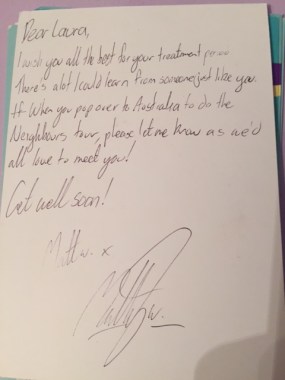 Dear Laura,
I wish you all the best for your treatment
There's a lot I could learn from someone just like you.
If When you pop over to Australia to do the
Neighbours tour, please let me know as we'd
all love to meet you!
Get well soon!
Matt w. x